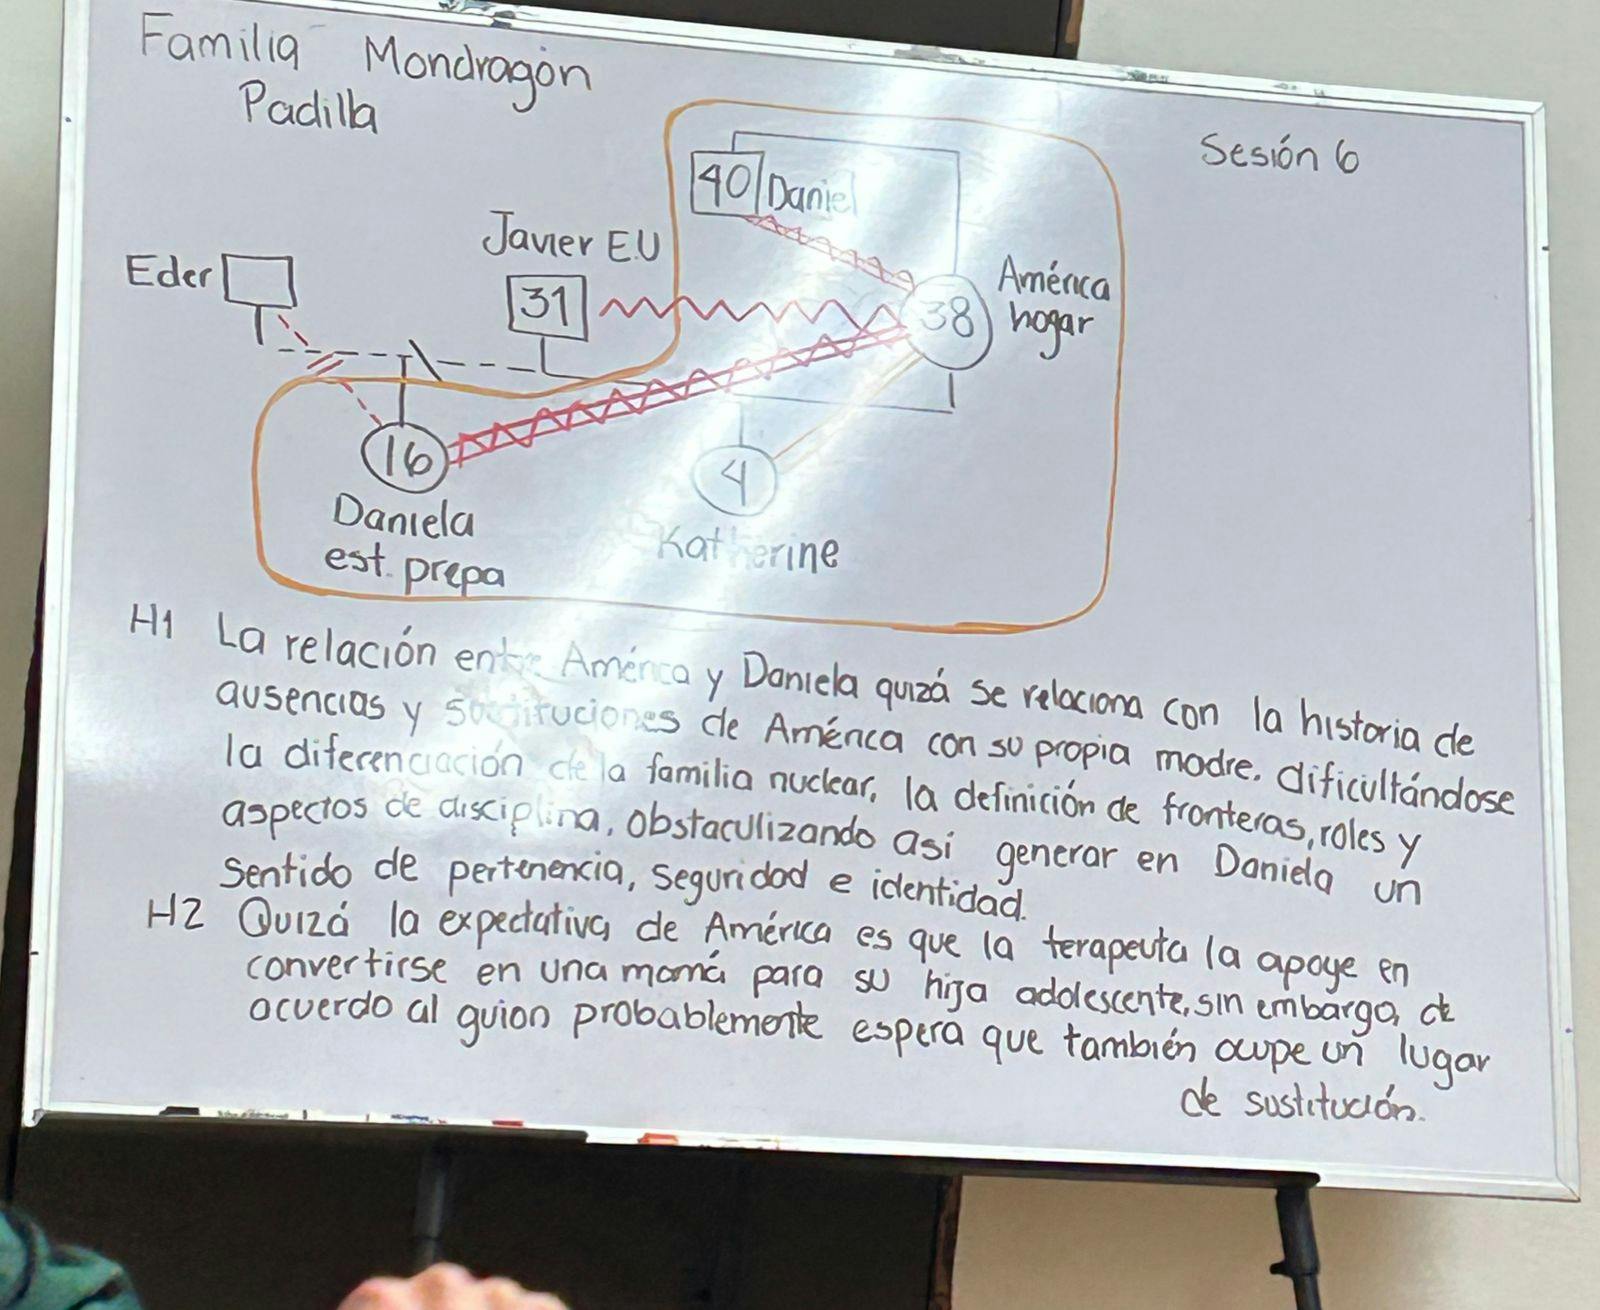 Familia Mondragón
Padilla
Sesión 6
40 Daniel
Javier E.U
Eder
31
38
América
hogar
16
4
Daniela
est. prepa
Katherine
H1 La relación entre América y Daniela quizá se relaciona con la historia de
ausencias y sustituciones de América con su propia madre. dificultándose
la diferenciación de la familia nuclear, la definición de fronteras, roles y
aspectos de disciplina, obstaculizando así generar en Daniela un
sentido de pertenencia, seguridad e identidad.
H2 Quizá la expectativa de América es que la terapeuta la apoye en
convertirse en una mamá para su hija adolescente, sin embargo, de
acuerdo al guion probablemente espera que también ocupe un lugar
de sustitución.